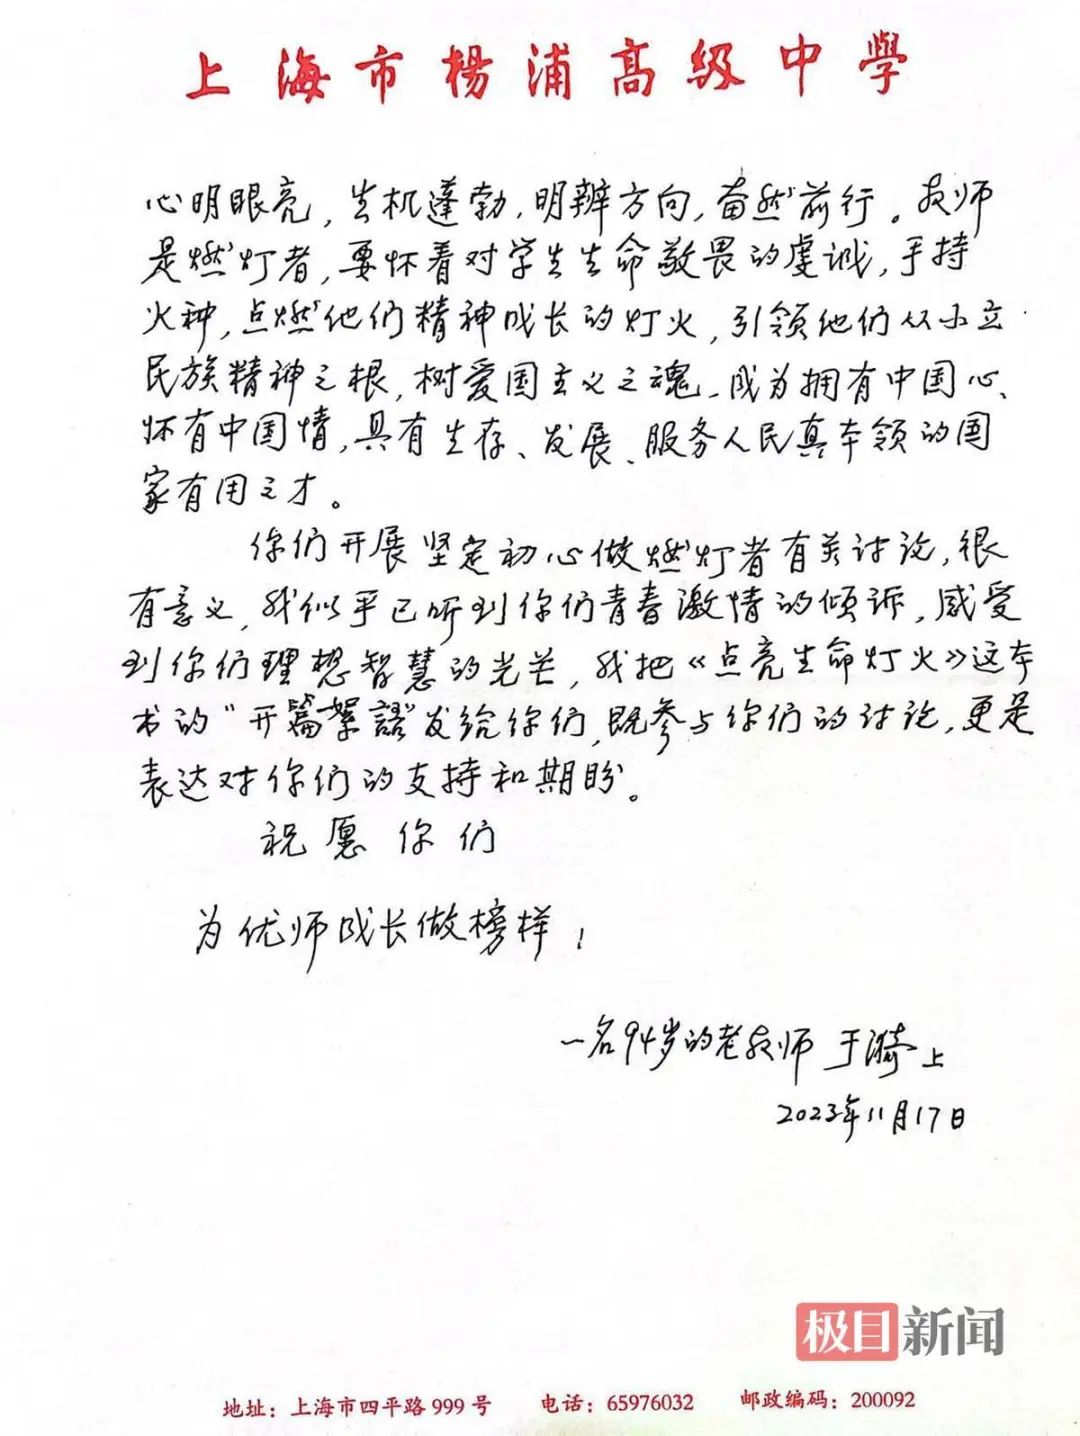 上海市杨浦高级中學
心明眼亮，生机蓬勃，明辨方向，奋然前行。教师
是燃灯者，要怀着对学生生命敬畏的虔诚，手持
火种，点燃他们精神成长的灯火，引领他们从小立
民族精神之根，树爱国主义之魂，成为拥有中国心、
怀有中国情，具有生存、发展、服务人民真本领的国
家有用之才。
你们开展坚定初心做燃灯者有关讨论，很
有意义，我似乎已听到你们青春激情的倾诉，感受
到你们理想智慧的光芒，我把《点亮生命灯火》这本
书的“开篇絮語”发给你们，既参与你们的讨论，更是
表达对你们的支持和期盼。
祝愿你们
为优师成长做榜样！
一名94岁的老教师 于漪 上
2023年11月17日
极目新闻
地址：上海市四平路999号 电话：65976032 邮政编码：200092